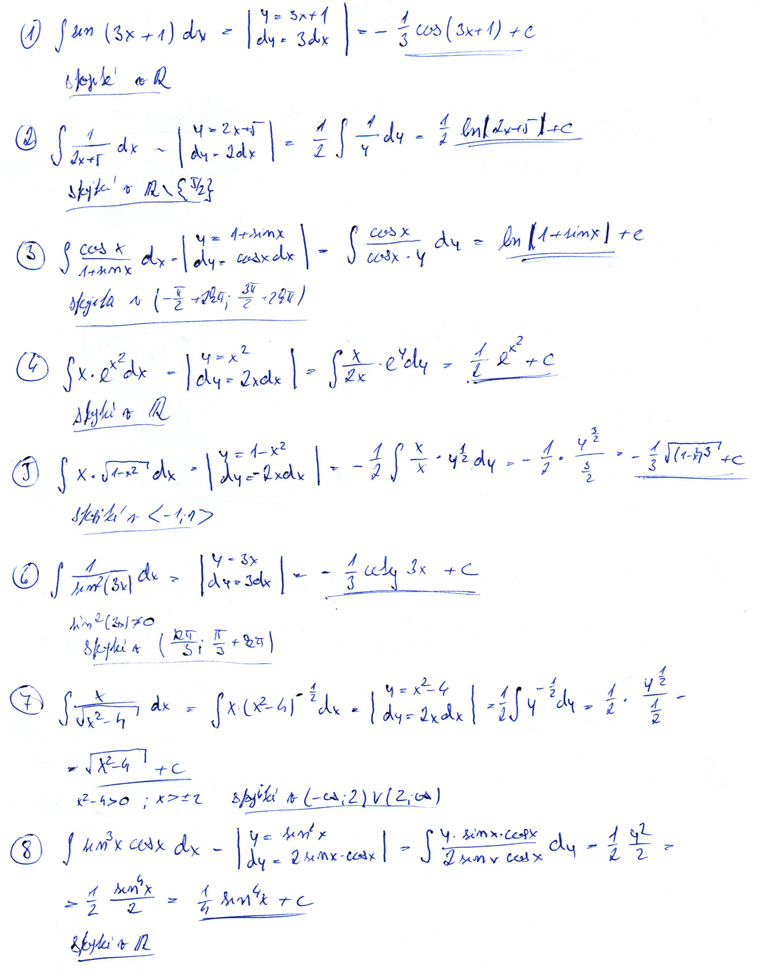 ① ∫ sin (3x+1) dx = | y = 3x+1 dy = 3dx | = - 1/3 cos(3x+1) + c
spojité v R
② ∫ 1/(2x+5) dx - | y = 2x+5 dy - 2dx | = 1/2 ∫ 1/y dy = 1/2 ln|2x+5| + c
spojité v R \ {5/2}
③ ∫ cos x/(1+sin x) dx - | y = 1+sin x dy = cos x dx | - ∫ cos x/(cos x · y) dy = ln |1+sin x| + c
spojitá v (-π/2 + 2kπ; 3π/2 + 2kπ)
④ ∫ x · e^(x²) dx - | y = x² dy = 2x dx | = ∫ x/(2x) · e^y dy = 1/2 e^(x²) + c
spojité v R
⑤ ∫ x · √(1-x²) dx - | y = 1-x² dy = -2x dx | = - 1/2 ∫ x/x · y^(1/2) dy = - 1/2 · y^(3/2)/(3/2) = - 1/3 √(1-x²)³ + c
spojité v <-1;1>
⑥ ∫ 1/sin²(3x) dx = | y - 3x dy = 3dx | = - 1/3 cotg 3x + c
sin²(3x) ≠ 0
spojité v ( ; π/3 + )
⑦ ∫ x/√(x²-4) dx = ∫ x · (x²-4)^(-1/2) dx = | y = x²-4 dy = 2x dx | = 1/2 ∫ y^(-1/2) dy = 1/2 · y^(1/2)/(1/2) =
= √(x²-4) + c
x²-4>0 ; x>±2 spojité v (-∞; 2) ∨ (2; ∞)
⑧ ∫ sin³x cos x dx - | y = sin²x dy = 2 sin x · cos x | = ∫ (y · sin x · cos x)/(2 sin x cos x) dy - 1/2 y²/2 =
= 1/2 sin⁴x/2 = 1/4 sin⁴x + c
spojité v R